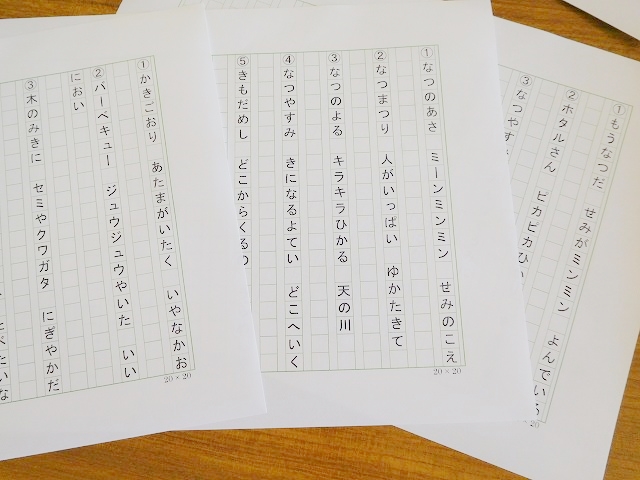 ①かきごおり　あたまがいたく　いやなかお
②バーベキュー　ジュウジュウやいた　いい
におい
③木のみきに　セミやクワガタ　にぎやかだ
たべたいな
20×20
①なつのあさ　ミーンミンミン　せみのこえ
②なつまつり　人がいっぱい　ゆかたきて
③なつのよる　キラキラひかる　天の川
④なつやすみ　きになるよてい　どこへいく
⑤きもだめし　どこからくるの
20×20
①もうなつだ　せみがミンミン　よんでいる
②ホタルさん　ピカピカひ
③なつやす
20